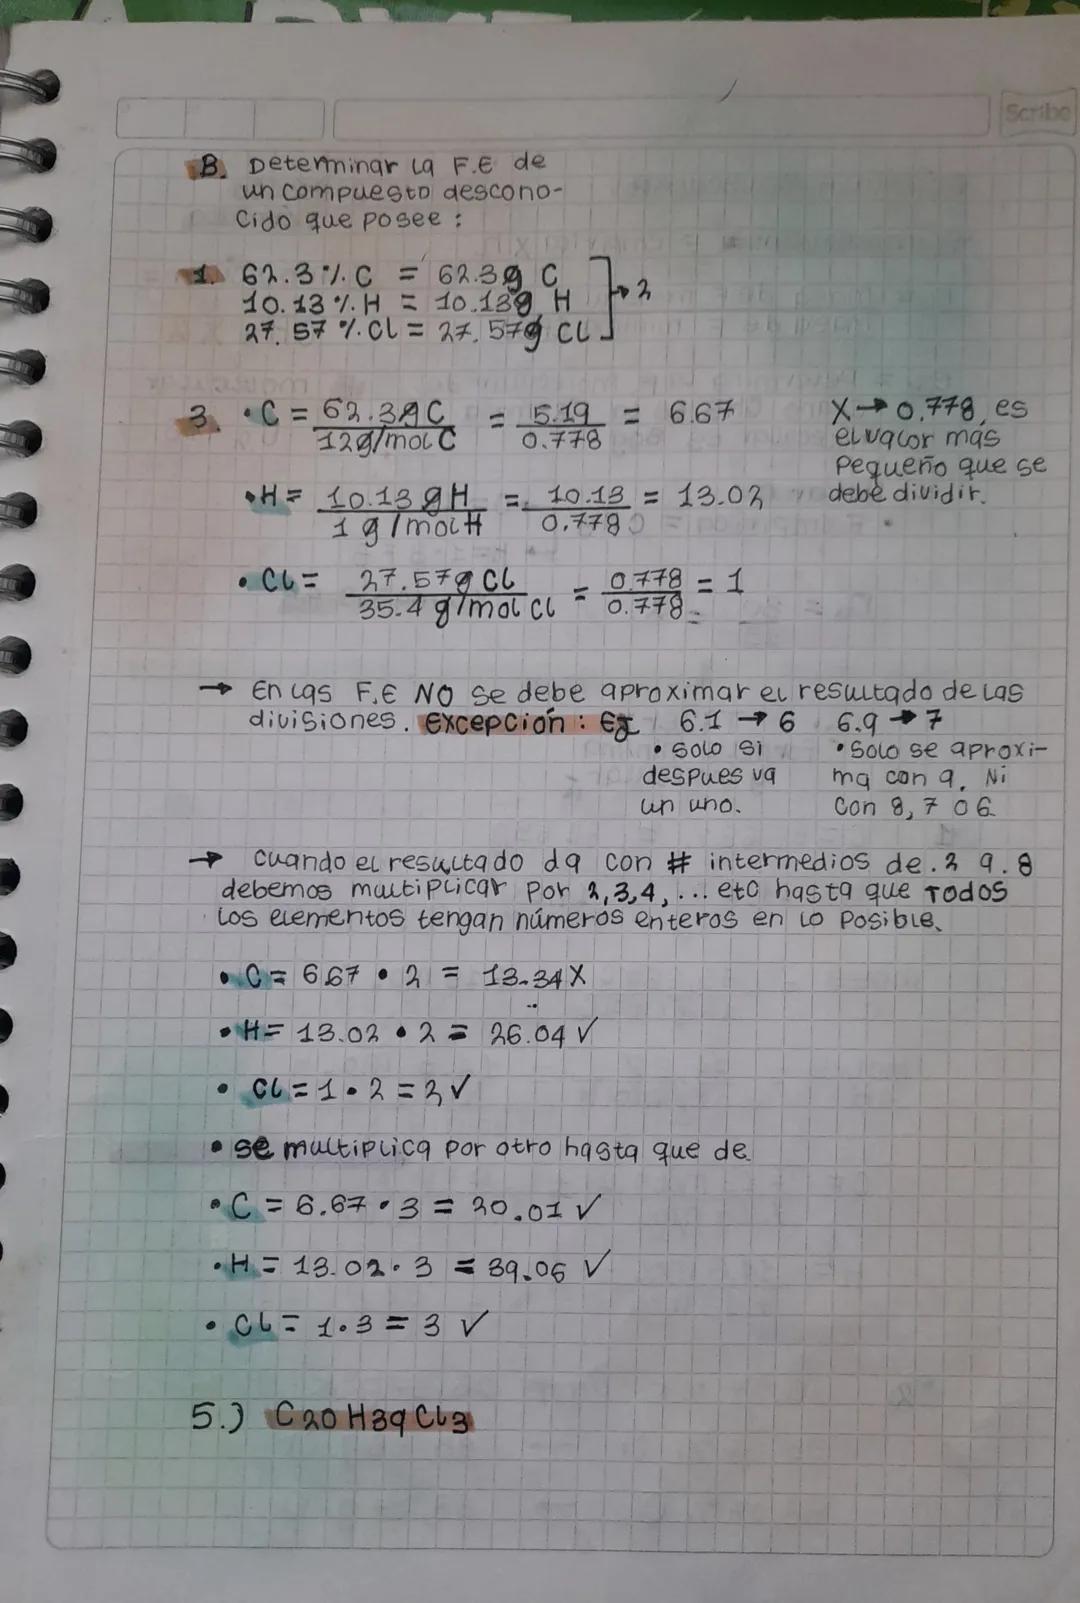 Scribe
B. Determinar la F.E de
un compuesto descono-
cido que posee :
1. 62.3 % C = 62.3g C
10.13 % H = 10.13g H → 2
27.57 % Cl = 27.57g Cl
3. • C = 62.3g C / 12g/mol C = 5.19 / 0.778 = 6.67
X → 0.778, es
el valor más
pequeño que se
debe dividir.
• H = 10.13 g H / 1 g/mol H = 10.13 / 0.778 = 13.02
• Cl = 27.57g Cl / 35.4 g/mol Cl = 0.778 / 0.778 = 1
→ En las F.E NO se debe aproximar el resultado de las
divisiones. Excepción : Ej 6.1 → 6 6.9 → 7
• solo si
despues va
un uno.
• Solo se aproxi-
ma con 9. Ni
con 8, 7 o 6
→ cuando el resultado da con # intermedios de .2 a .8
debemos multiplicar por 2,3,4, ... etc hasta que TODOS
los elementos tengan números enteros en lo posible.
• C = 6.67 • 2 = 13.34 X
• H = 13.02 • 2 = 26.04 ✓
• Cl = 1 • 2 = 2 ✓
• se multiplica por otro hasta que de
• C = 6.67 • 3 = 20.01 ✓
• H = 13.02 • 3 = 39.06 ✓
• Cl = 1 • 3 = 3 ✓
5.) C20 H39 Cl3